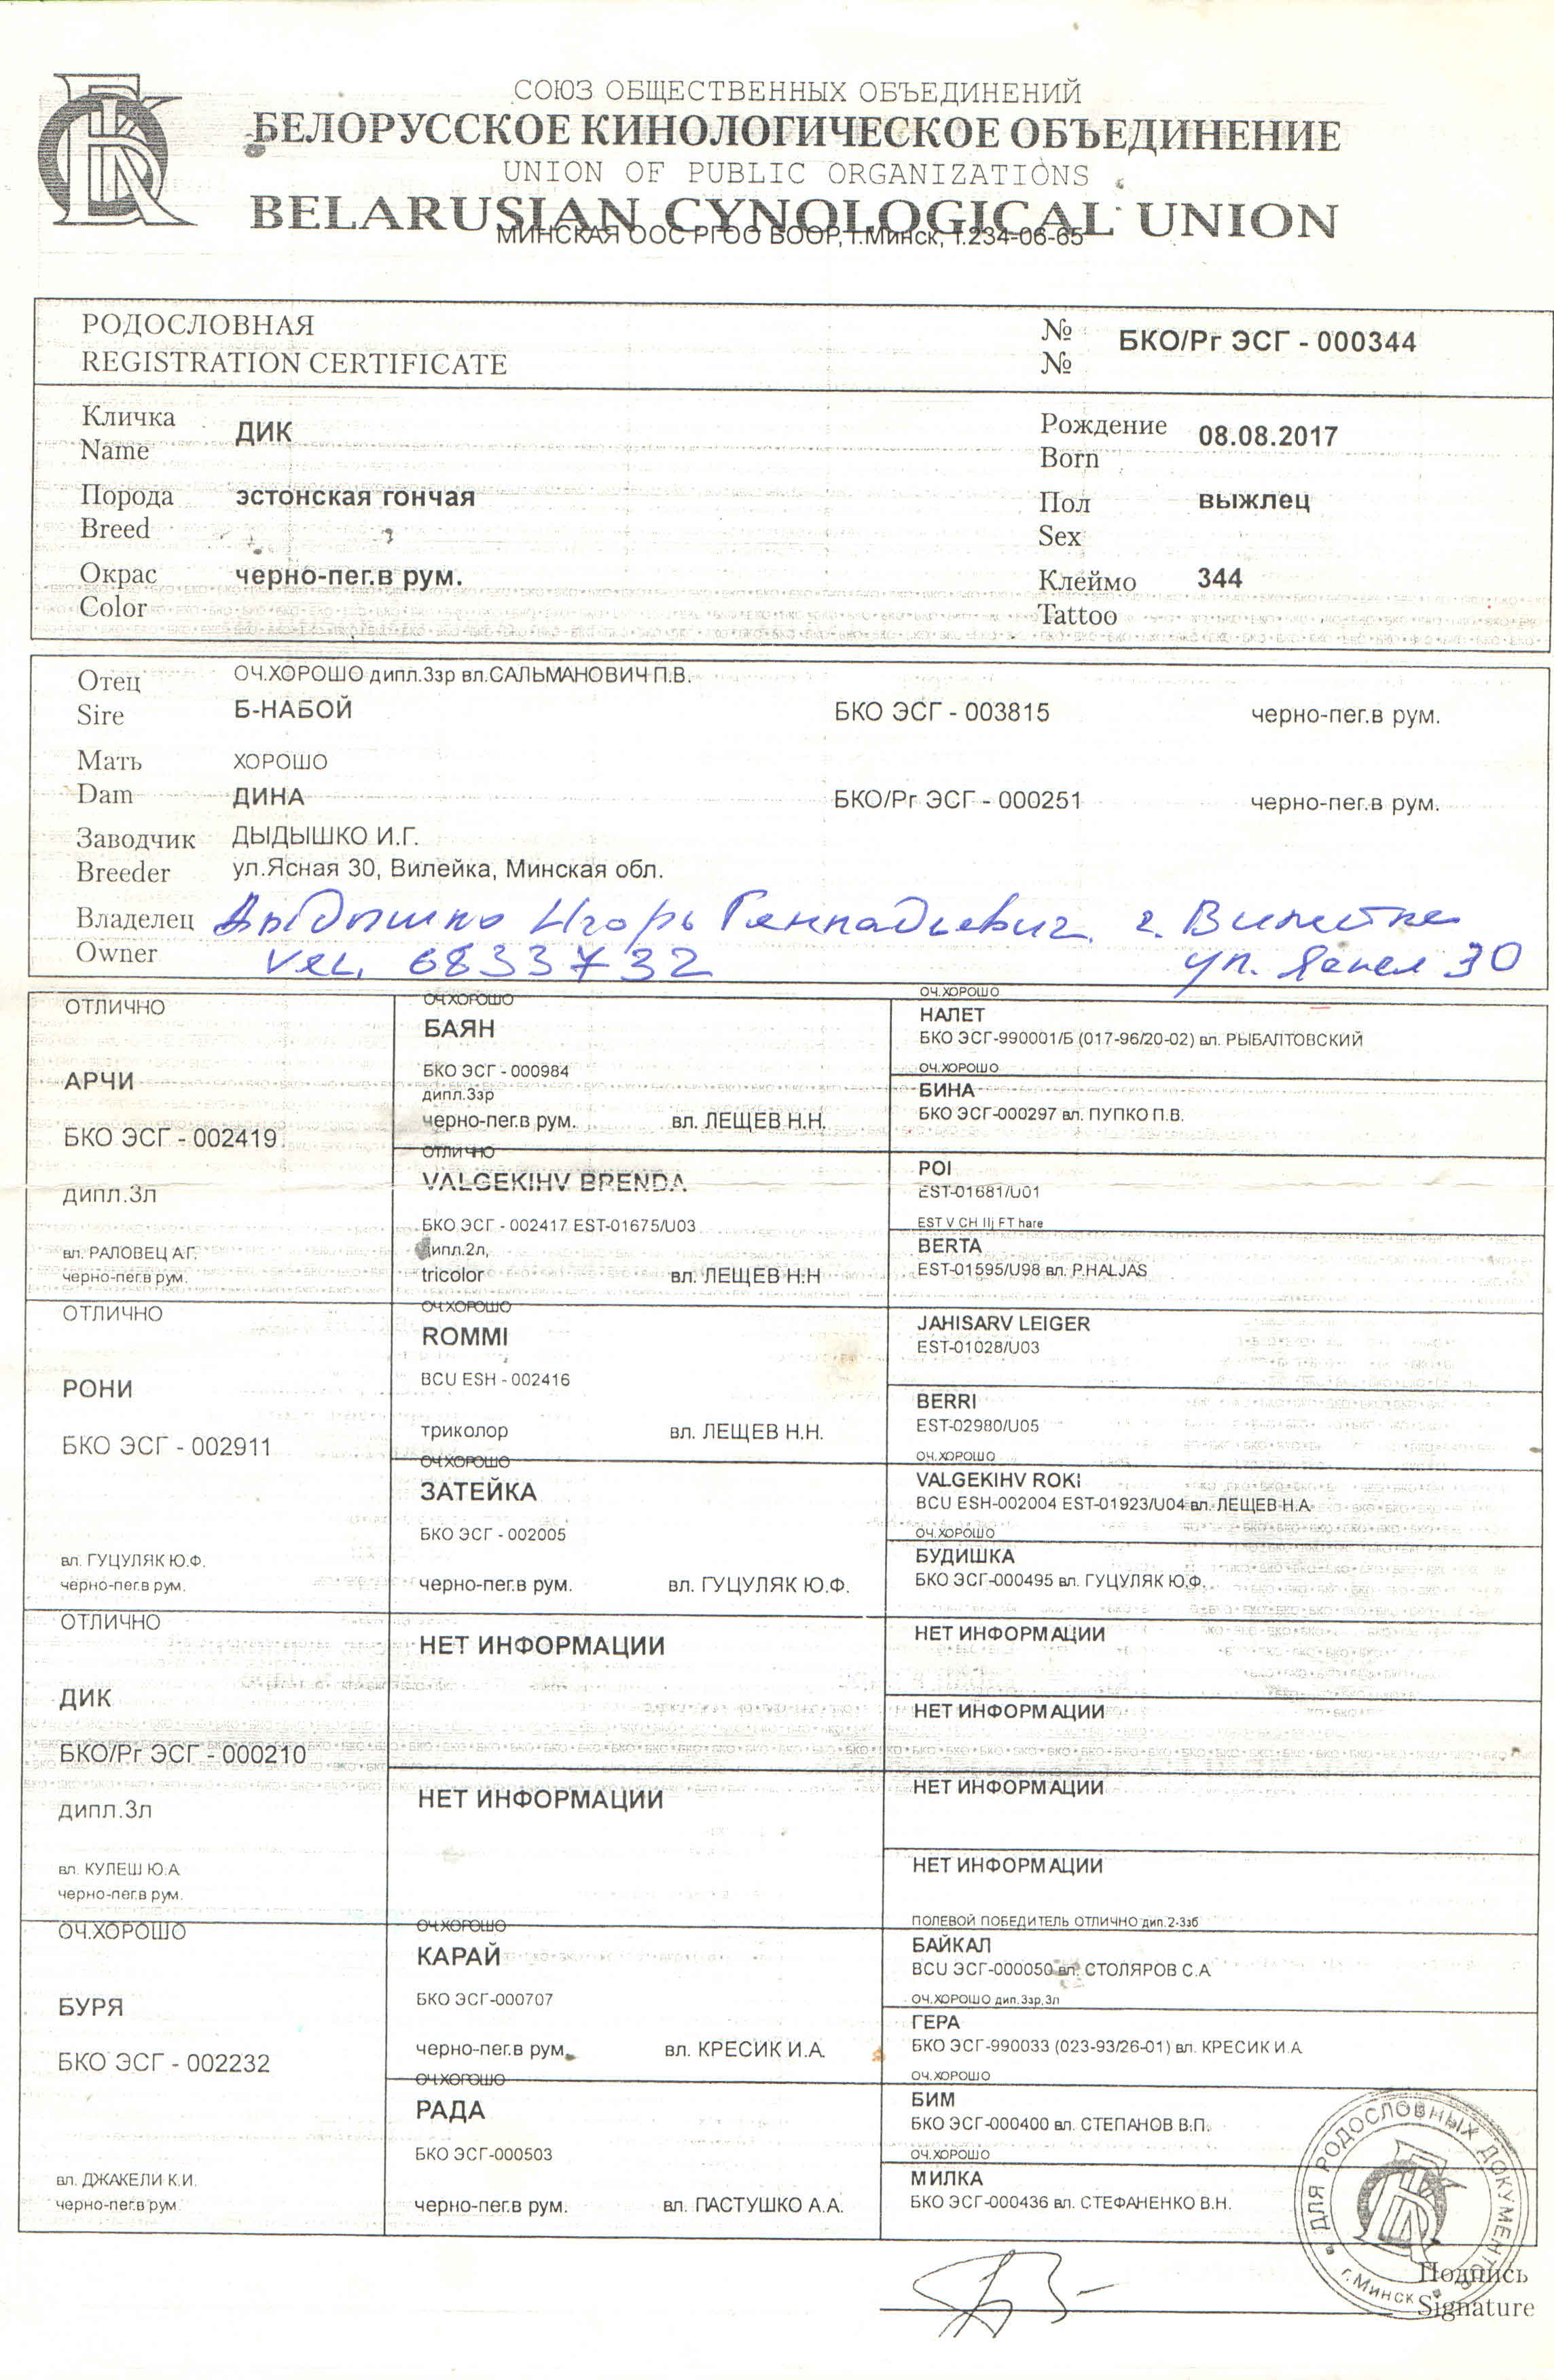 СОЮЗ ОБЩЕСТВЕННЫХ ОБЪЕДИНЕНИЙ
БЕЛОРУССКОЕ КИНОЛОГИЧЕСКОЕ ОБЪЕДИНЕНИЕ
UNION OF PUBLIC ORGANIZATIONS
BELARUSIAN CYNOLOGICAL UNION
МИНСКАЯ ООС РГОО БООР, г.Минск, т.234-06-65
РОДОСЛОВНАЯ
REGISTRATION CERTIFICATE
№ БКО/Рг ЭСГ - 000344
№
Кличка
Name
ДИК
Рождение
Born
08.08.2017
Порода
Breed
эстонская гончая
Пол
Sex
выжлец
Окрас
Color
черно-пег.в рум.
Клеймо
Tattoo
344
Отец
Sire
ОЧ.ХОРОШО дипл.3зр вл.САЛЬМАНОВИЧ П.В.
Б-НАБОЙ БКО ЭСГ - 003815 черно-пег.в рум.
Мать
Dam
ХОРОШО
ДИНА БКО/Рг ЭСГ - 000251 черно-пег.в рум.
Заводчик
Breeder
ДЫДЫШКО И.Г.
ул.Ясная 30, Вилейка, Минская обл.
Владелец
Owner
Дыдышко Игорь Геннадьевич г. Вилейка
тел. 6833732 ул. Ясная 30
ОТЛИЧНО
АРЧИ
БКО ЭСГ - 002419
дипл.3л
вл. РАЛОВЕЦ А.Г.
черно-пег.в рум.
ОЧ.ХОРОШО
БАЯН
БКО ЭСГ - 000984
дипл.3зр
черно-пег.в рум. вл. ЛЕЩЕВ Н.Н.
ОТЛИЧНО
VALGEKIHV BRENDA
БКО ЭСГ - 002417 EST-01675/U03
дипл.2л,
tricolor вл. ЛЕЩЕВ Н.Н
ОЧ.ХОРОШО
НАЛЕТ
БКО ЭСГ-990001/Б (017-96/20-02) вл. РЫБАЛТОВСКИЙ
ОЧ.ХОРОШО
БИНА
БКО ЭСГ-000297 вл. ПУПКО П.В.
POI
EST-01681/U01
EST V CH IIj FT hare
BERTA
EST-01595/U98 вл. P.HALJAS
ОТЛИЧНО
РОНИ
БКО ЭСГ - 002911
вл. ГУЦУЛЯК Ю.Ф.
черно-пег.в рум.
ОЧ.ХОРОШО
ROMMI
BCU ESH - 002416
триколор вл. ЛЕЩЕВ Н.Н.
ОЧ.ХОРОШО
ЗАТЕЙКА
БКО ЭСГ - 002005
черно-пег.в рум. вл. ГУЦУЛЯК Ю.Ф.
JAHISARV LEIGER
EST-01028/U03
BERRI
EST-02980/U05
ОЧ.ХОРОШО
VALGEKIHV ROKI
BCU ESH-002004 EST-01923/U04 вл. ЛЕЩЕВ Н.А
ОЧ.ХОРОШО
БУДИШКА
БКО ЭСГ-000495 вл. ГУЦУЛЯК Ю.Ф.
ОТЛИЧНО
ДИК
БКО/Рг ЭСГ - 000210
дипл.3л
вл. КУЛЕШ Ю.А
черно-пег.в рум.
НЕТ ИНФОРМАЦИИ
НЕТ ИНФОРМАЦИИ
НЕТ ИНФОРМАЦИИ
НЕТ ИНФОРМАЦИИ
НЕТ ИНФОРМАЦИИ
НЕТ ИНФОРМАЦИИ
ОЧ.ХОРОШО
БУРЯ
БКО ЭСГ - 002232
вл. ДЖАКЕЛИ К.И.
черно-пег.в рум
ОЧ.ХОРОШО
КАРАЙ
БКО ЭСГ-000707
черно-пег.в рум. вл. КРЕСИК И.А.
ОЧ.ХОРОШО
РАДА
БКО ЭСГ-000503
черно-пег.в рум. вл. ПАСТУШКО А.А.
ПОЛЕВОЙ ПОБЕДИТЕЛЬ ОТЛИЧНО дип.2-3зб
БАЙКАЛ
BCU ЭСГ-000050 вл. СТОЛЯРОВ С.А
ОЧ.ХОРОШО дип.3зр,3л
ГЕРА
БКО ЭСГ-990033 (023-93/26-01) вл. КРЕСИК И.А
ОЧ.ХОРОШО
БИМ
БКО ЭСГ-000400 вл. СТЕПАНОВ В.П.
ОЧ.ХОРОШО
МИЛКА
БКО ЭСГ-000436 вл. СТЕФАНЕНКО В.Н.
ДЛЯ РОДОСЛОВНЫХ ДОКУМЕНТОВ
г.Минск
Подпись
Signature